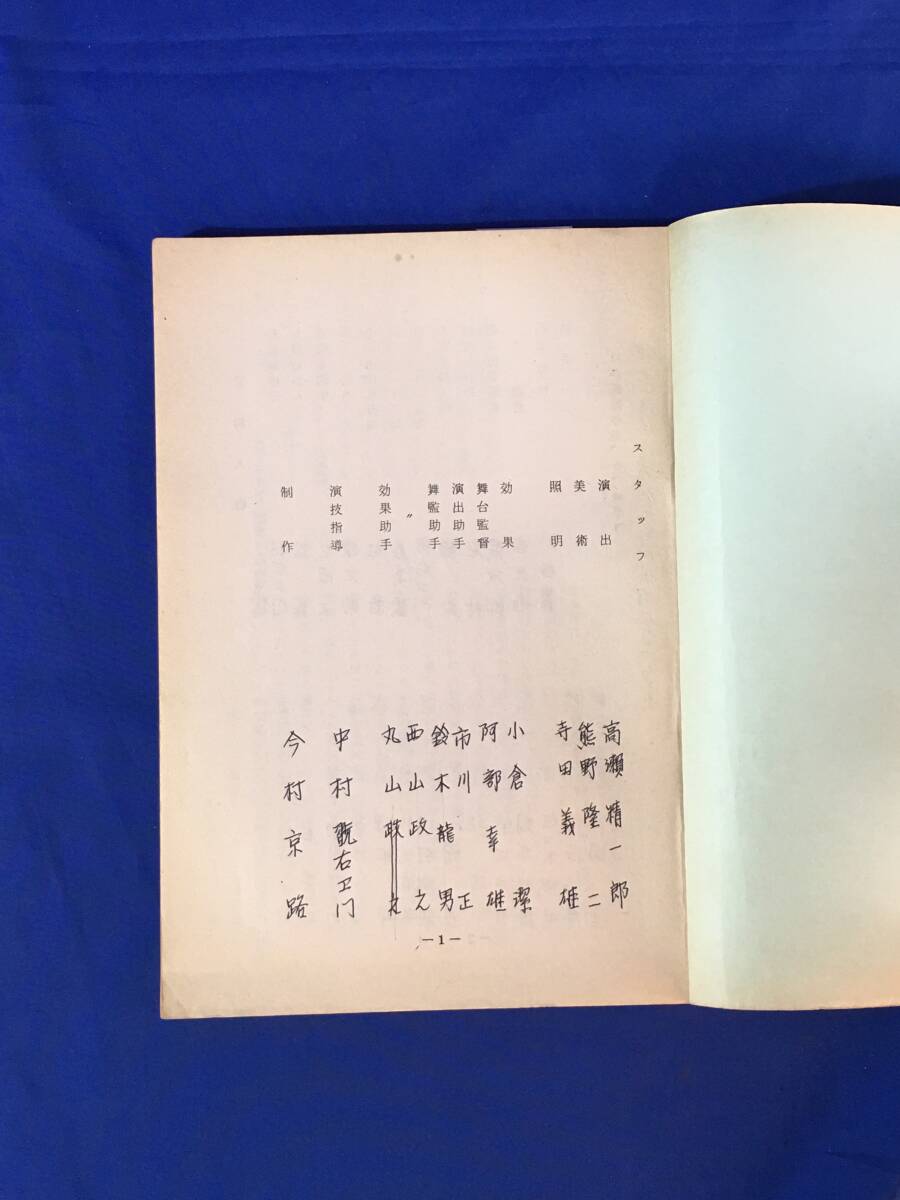 スタッフ
演出
美術
照明
効果
舞台監督
演出助手
舞監助手
〃
効果助手
演技指導
制作
高瀬精一郎
熊野隆二
寺田義雄
小倉潔
阿部幸雄
市川正
鈴木龍男
西山政之
丸山
中村翫右卫门
今村京路
—1—